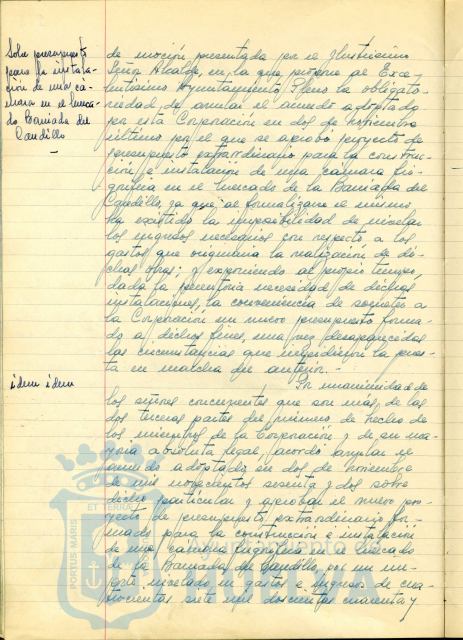 Sobre presupuesto
para la instala-
ción de una cá-
mara en el merca-
do Barriada del
Caudillo
de moción presentada por el Ilustrísimo
Señor Alcalde, en la que propone al Exce-
lentísimo Ayuntamiento Pleno la obligato-
riedad de anular el acuerdo adoptado
por esta Corporación en dos de noviembre
último por el que se aprobó proyecto de
presupuesto extraordinario para la construc-
ción e instalación de una cámara frigo-
rífica en el mercado de la Barriada del
Caudillo, ya que al formalizarse el mismo
ha existido la imposibilidad de nivelar
los ingresos necesarios con respecto a los
gastos que originaría la realización de di-
chas obras; y exponiendo al propio tiempo,
dada la perentoria necesidad de dichas
instalaciones, la conveniencia de someter a
la Corporación un nuevo presupuesto forma-
do a dichos fines, una vez desaparecidas
las circunstancias que impidieron la pues-
ta en marcha del anterior.-
idem idem
Por unanimidad de
los señores concurrentes que son más de las
dos terceras partes del número de hecho de
los miembros de la Corporación y de su ma-
yoría absoluta legal, acordó anular el
acuerdo adoptado en dos de noviembre
de mil novecientos sesenta y dos sobre
dicho particular y aprobar el nuevo pro-
yecto de presupuesto extraordinario for-
mado para la construcción e instalación
de una cámara frigorífica en el mercado
de la Barriada del Caudillo, por un im-
porte nivelado en gastos e ingresos de cua-
trocientas siete mil doscientas cuarenta y
PORTUS MARIS
ET TERRAE
Ayuntamiento
HUELVA